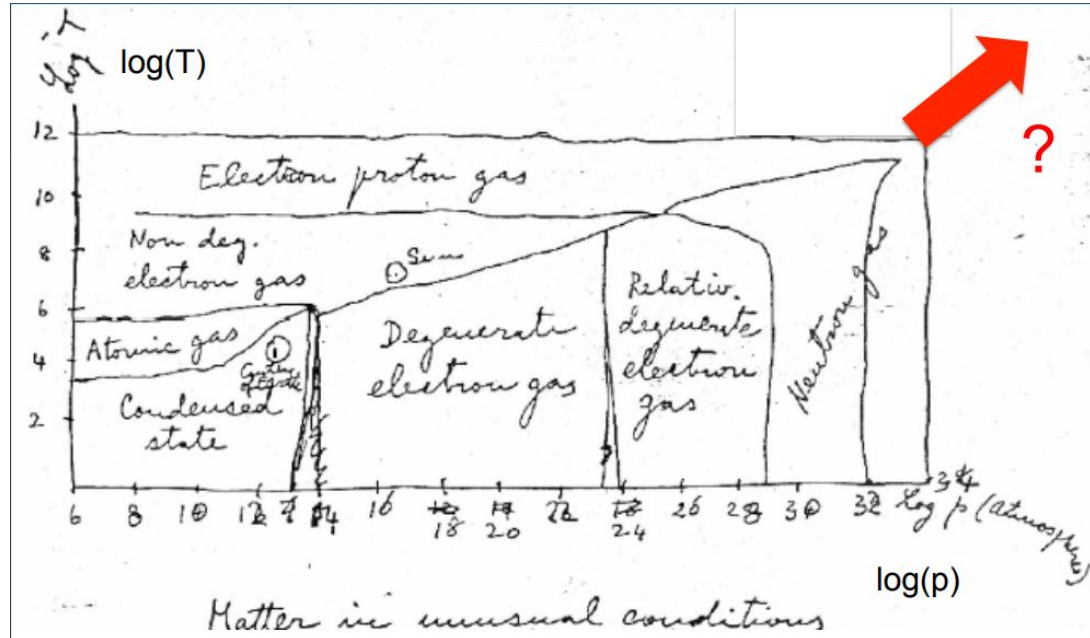 Log T
log(T)
12
10
8
6
4
2
?
Electron proton gas
Non deg.
electron gas
Sun
Atomic gas
Condensed
state
Degenerate
electron gas
Relativ.
degenerate
electron
gas
Neutron gas
6 8 10 12 14 16 18 20 22 24 26 28 30 32 34
Log p (atmospheres)
log(p)
Matter in unusual conditions